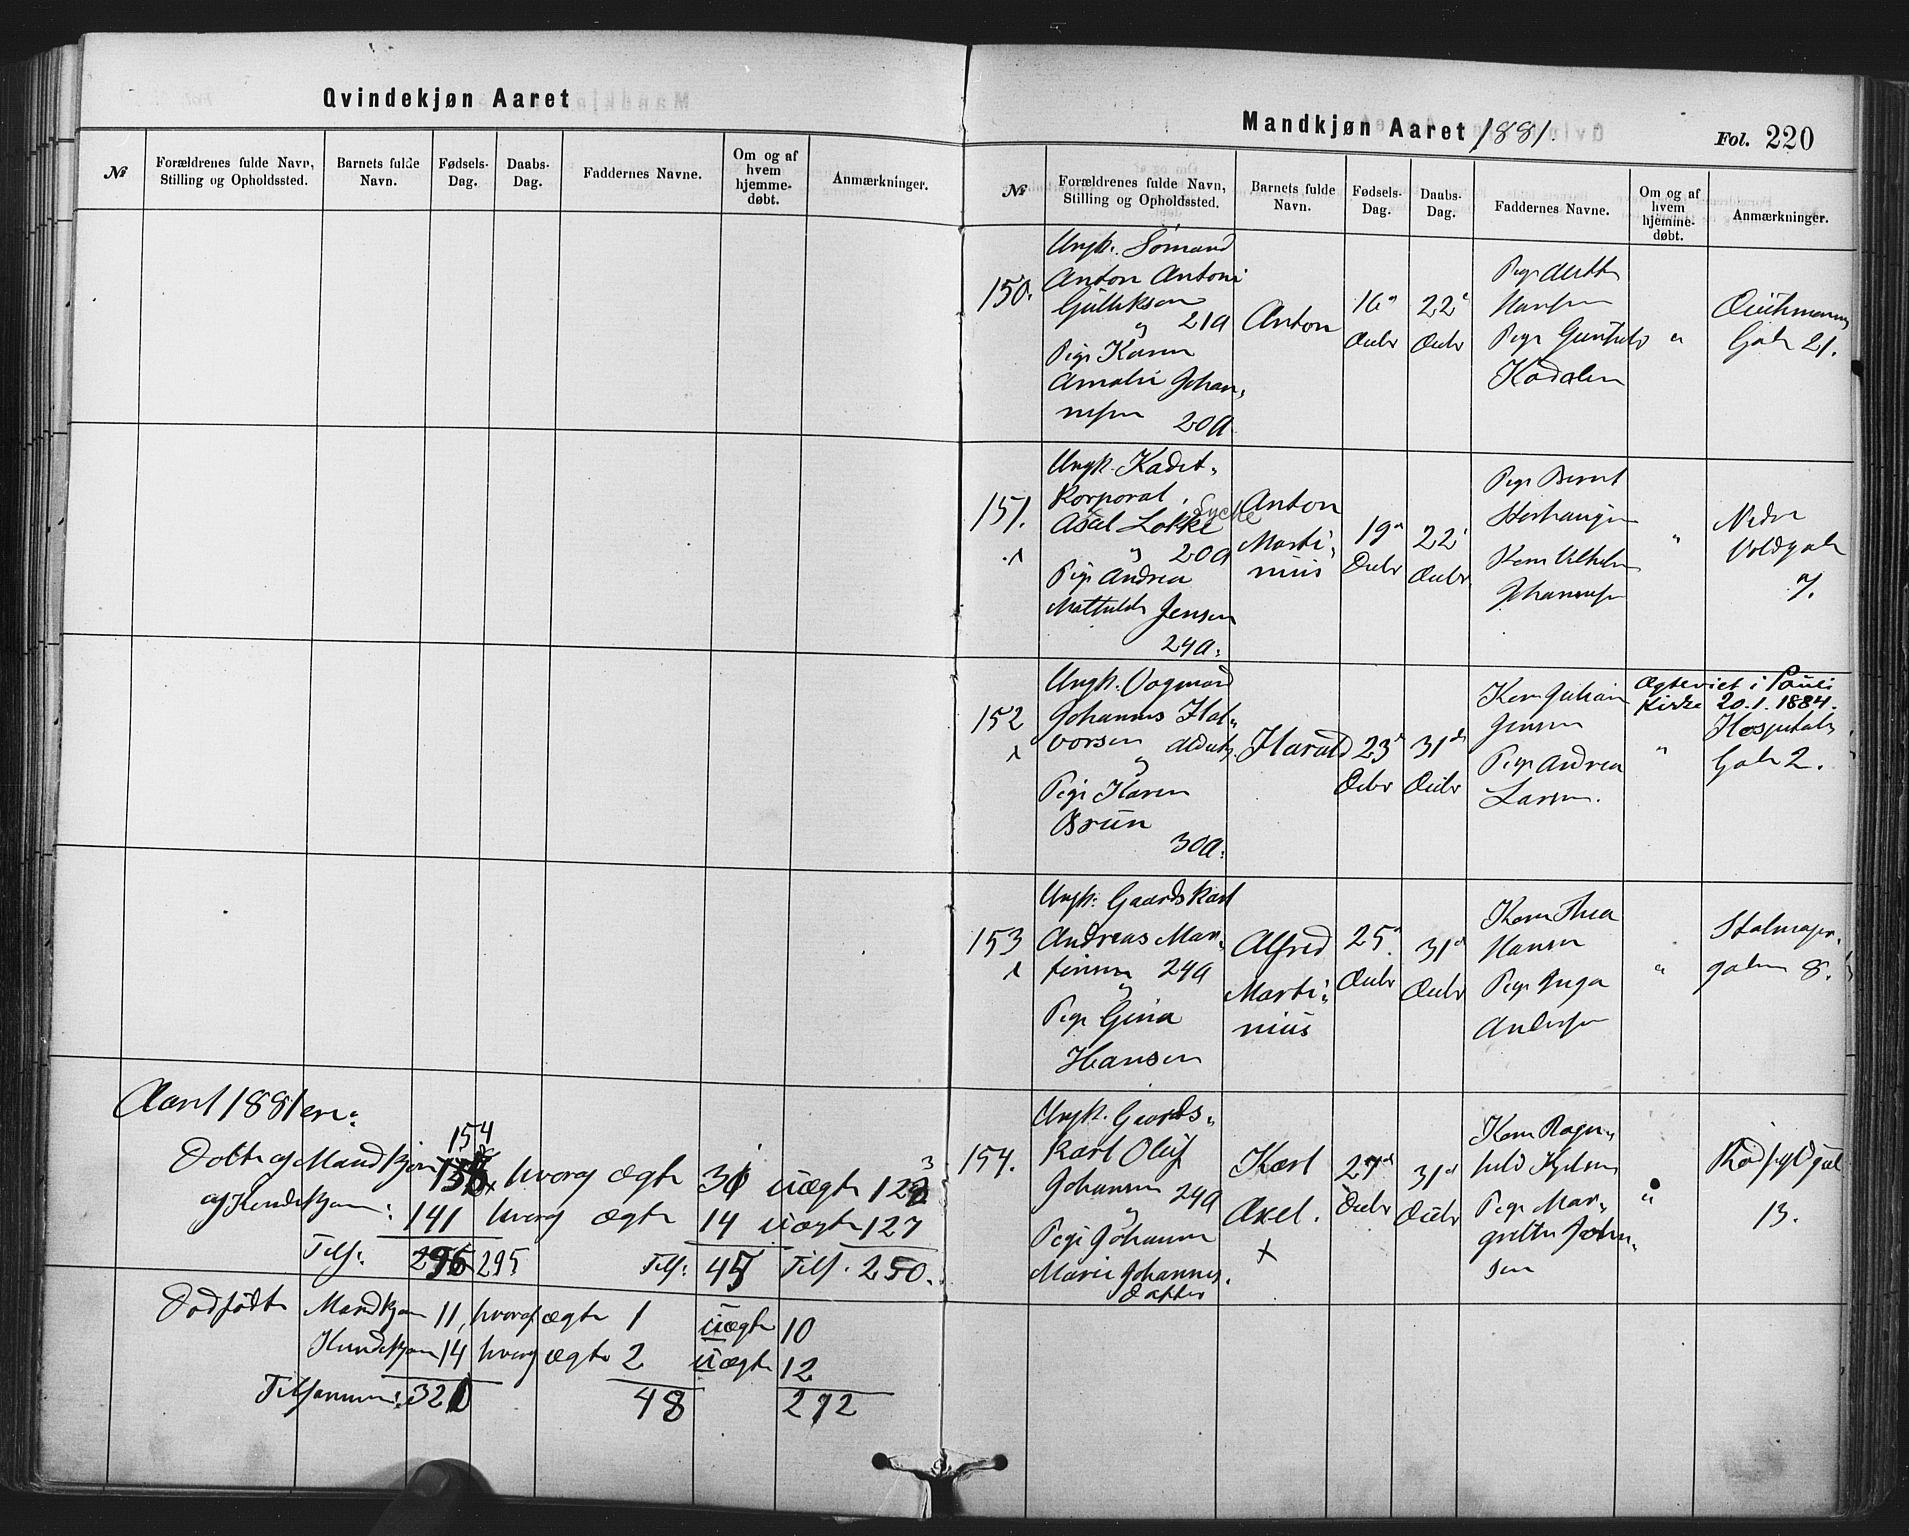 Qvindekjøn Aaret
№
Forældrenes fulde Navn,
Stilling og Opholdssted.
Barnets fulde
Navn.
Fødsels-
Dag.
Daabs-
Dag.
Faddernes Navne.
Om og af
hvem
hjemme-
døbt.
Anmærkninger.
Aaret 1881 ere:
154
Døbte af Mandkjøn hvoraf ægte 31 uægte 123
af Kvindekjøn: 141 hvoraf ægte 14 uægte 127
Tils: 295 Tils: 45 Tils. 250.
Dødfødte Mandkjøn 11, hvoraf ægte 1 uægte 10
Kvindekjøn 14 hvoraf ægte 2 uægte 12
Tilsammen: 320 48 272
Mandkjøn Aaret 1881.
Fol. 220
№
Forældrenes fulde Navn,
Stilling og Opholdssted.
Barnets fulde
Navn.
Fødsels-
Dag.
Daabs-
Dag.
Faddernes Navne.
Om og af
hvem
hjemme-
døbt.
Anmærkninger.
150.
Ungk. Sømand
Anton Antoni
Gulliksen
og 21a
Pige Karen
Amalie Johan-
nesen
20a
Anton
16
Decbr
22
Decbr
Pige
Hansen
Pige
"
Gade 21.
151.
Ungk. Kadet-
korporal
Axel Løkke Lycke
og 20a
Pige Andrea
Mathilde Jensen
24a.
Anton
Marti-
nius
19
Decbr
22
Decbr
Pige Bernt
Kone Vilhelm
Johannesen
"
Nedre
Voldgade
7.
152
Ungk. Vogmand
Johannes Hal-
vorsen
og
Pige Karen
Brun
30a.
Harald
23
Decbr
31
Decbr
Kone Julian
Jensen
Pige Andrea
Larsen.
Ægteviet i Pauli
Kirke 20.1.1884.
"
Hospitals
Gade 2.
153
Ungk. Gaardskarl
Andreas Mar-
tinsen 24a
og
Pige Gina
Hansen
Alfred
Marti-
nius
25
Decbr
31
Decbr
Kone Thea
Hansen
Pige Inga
Andersen
"
gaden 8.
154.
Ungk. Gaards-
karl Oluf
Johansen
og 24a
Pige Johanne
Marie Johannes-
datter
Karl
Axel.
x
27
Decbr
31
Decbr
Kone Ragn-
hild
Pige Mar-
grethe John-
sen
"
13.